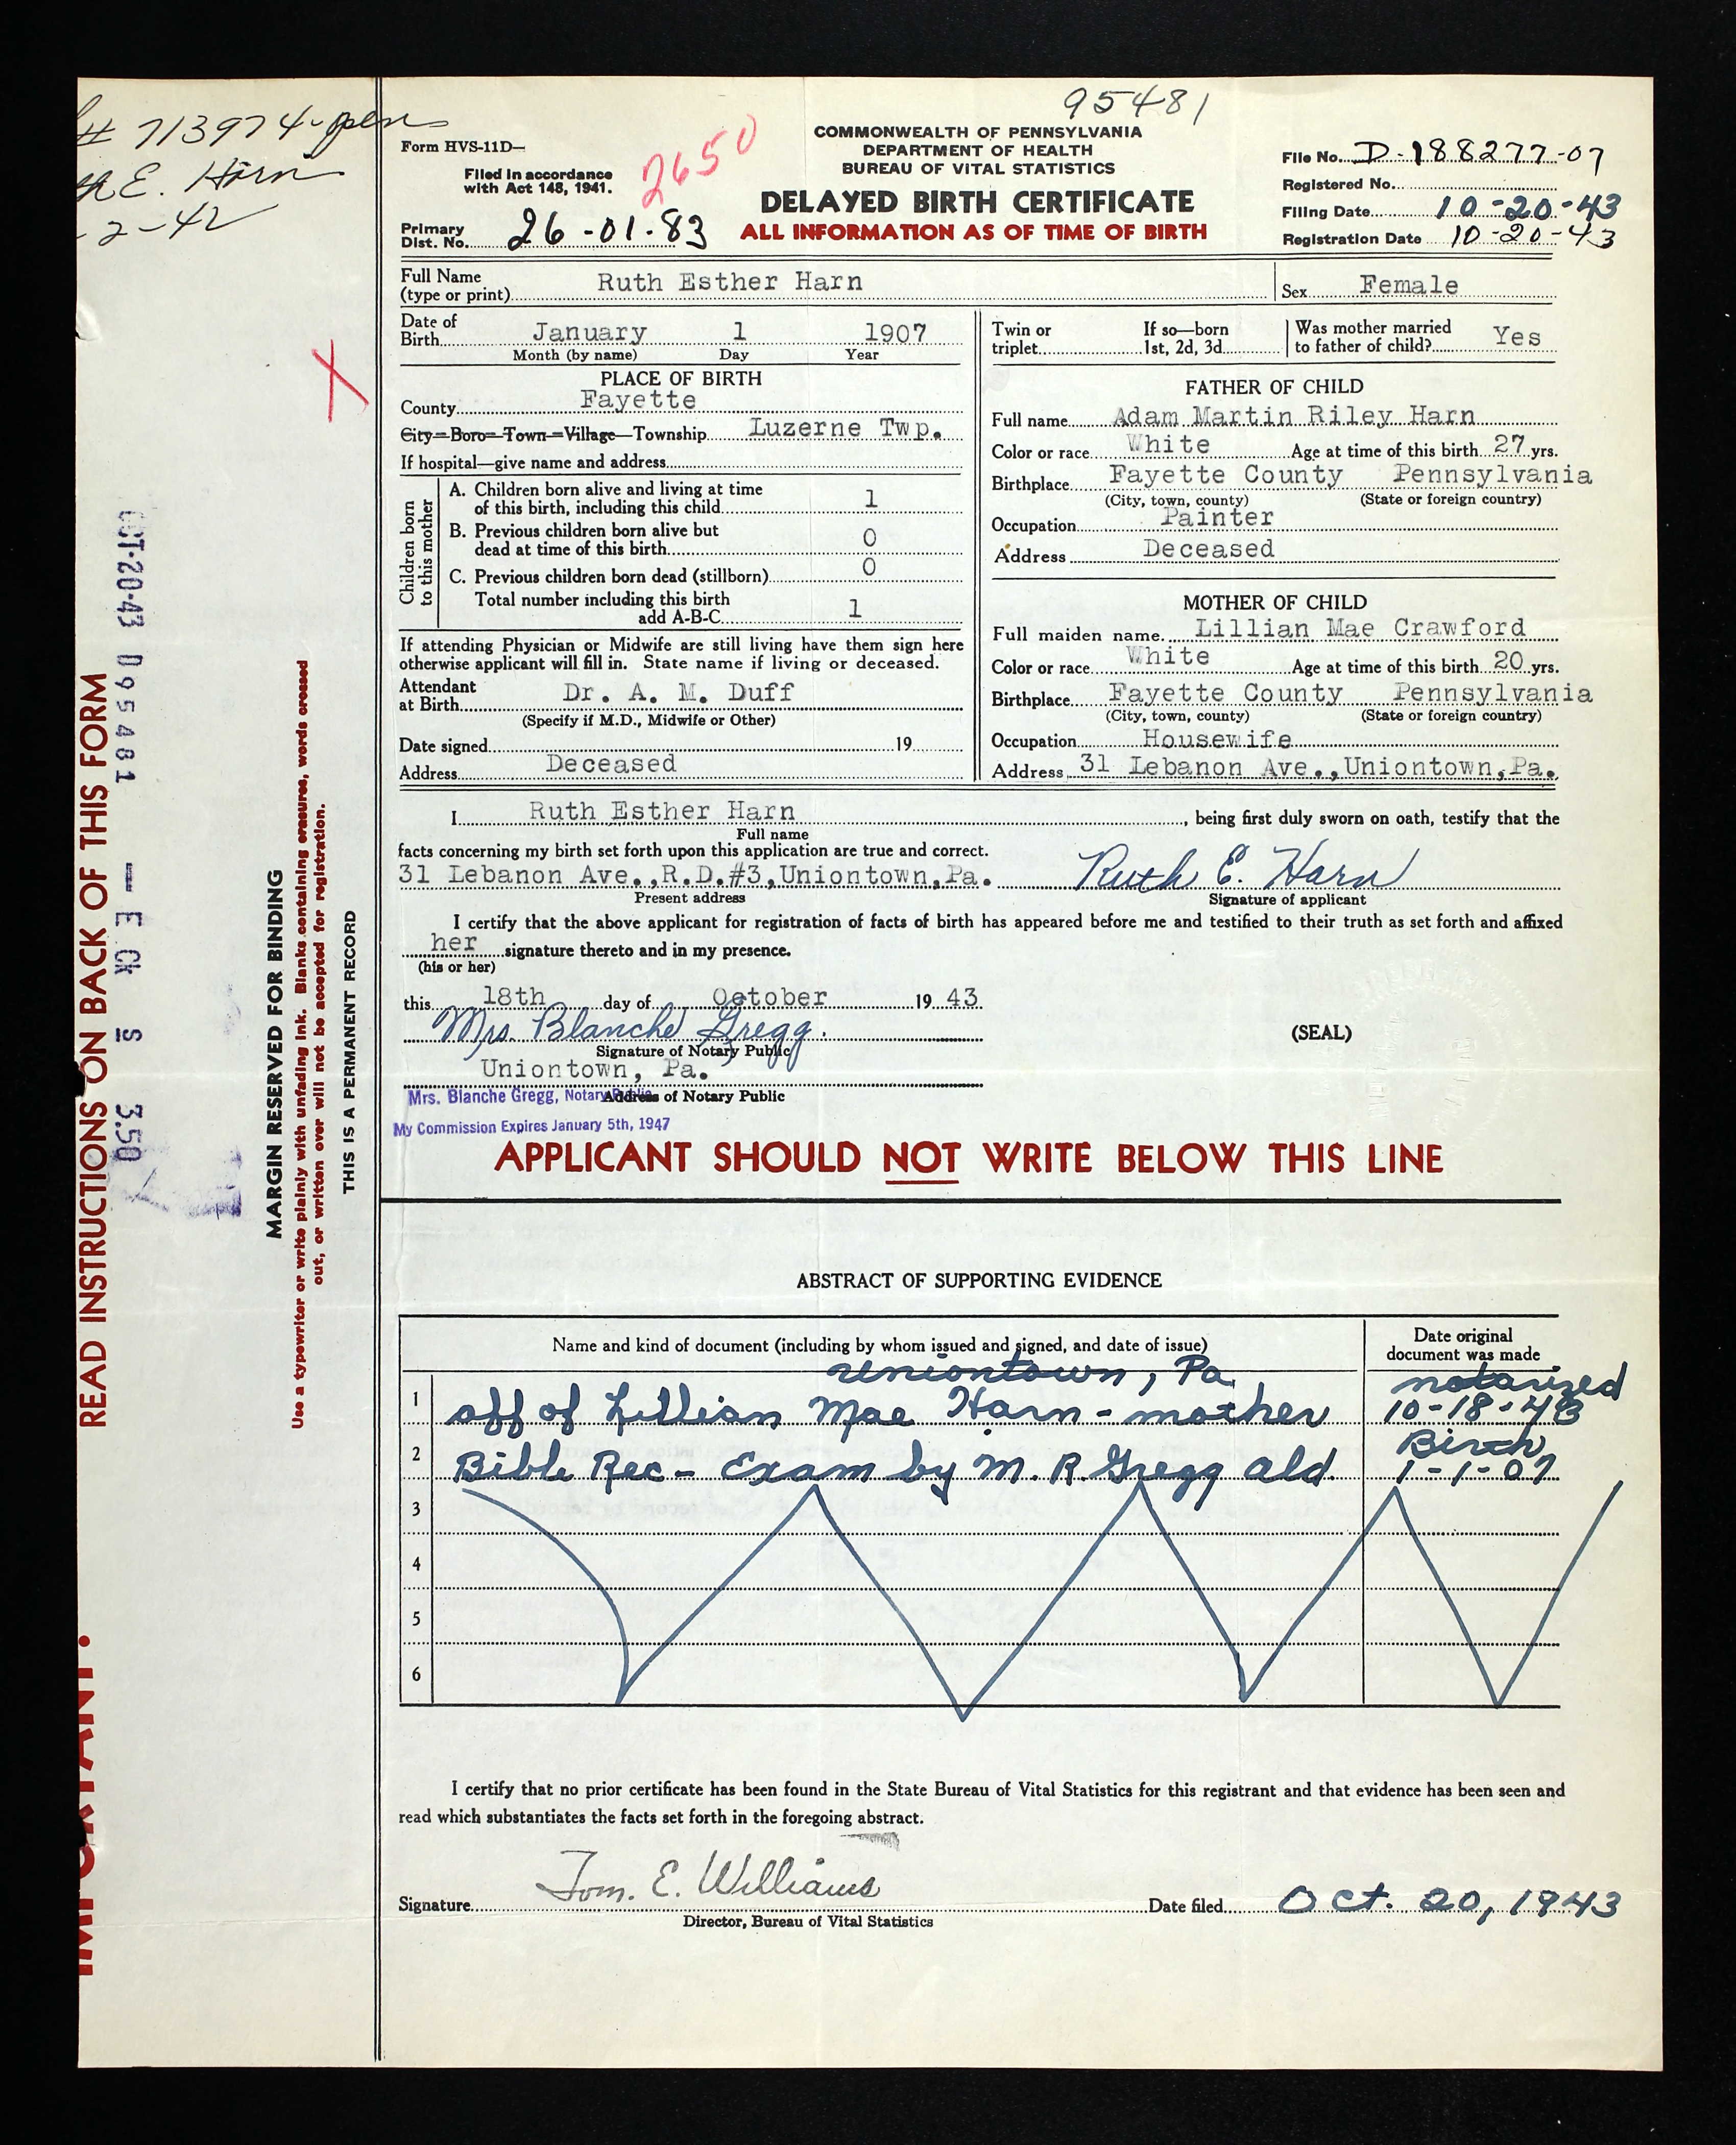 # 713974-pen
E. Harn
-2-42
95481
2650
Form HVS-11D—
Filed in accordance
with Act 148, 1941.
Primary
Dist. No. 26-01-83
COMMONWEALTH OF PENNSYLVANIA
DEPARTMENT OF HEALTH
BUREAU OF VITAL STATISTICS
DELAYED BIRTH CERTIFICATE
ALL INFORMATION AS OF TIME OF BIRTH
File No. D-188277-07
Registered No.
Filing Date 10-20-43
Registration Date 10-20-43
Full Name
(type or print) Ruth Esther Harn
Sex Female
Date of
Birth January 1 1907
Month (by name) Day Year
Twin or
triplet
If so—born
1st, 2d, 3d
Was mother married
to father of child? Yes
PLACE OF BIRTH
County Fayette
City—Boro—Town—Village—Township Luzerne Twp.
If hospital—give name and address
Children born
to this mother
A. Children born alive and living at time
of this birth, including this child 1
B. Previous children born alive but
dead at time of this birth 0
C. Previous children born dead (stillborn) 0
Total number including this birth
add A-B-C 1
If attending Physician or Midwife are still living have them sign here
otherwise applicant will fill in. State name if living or deceased.
Attendant
at Birth Dr. A. M. Duff
(Specify if M.D., Midwife or Other)
Date signed 19
Address Deceased
FATHER OF CHILD
Full name Adam Martin Riley Harn
Color or race White Age at time of this birth 27 yrs.
Birthplace Fayette County Pennsylvania
(City, town, county) (State or foreign country)
Occupation Painter
Address Deceased
MOTHER OF CHILD
Full maiden name. Lillian Mae Crawford
Color or race White Age at time of this birth 20 yrs.
Birthplace Fayette County Pennsylvania
(City, town, county) (State or foreign country)
Occupation Housewife
Address 31 Lebanon Ave., Uniontown, Pa.
I Ruth Esther Harn, being first duly sworn on oath, testify that the
Full name
facts concerning my birth set forth upon this application are true and correct.
31 Lebanon Ave., R.D.#3, Uniontown, Pa. Ruth E. Harn
Present address Signature of applicant
I certify that the above applicant for registration of facts of birth has appeared before me and testified to their truth as set forth and affixed
her signature thereto and in my presence.
(his or her)
this 18th day of October 19 43
Mrs. Blanche Gregg.
Signature of Notary Public
(SEAL)
Uniontown, Pa.
Address of Notary Public
Mrs. Blanche Gregg, Notary Public
My Commission Expires January 5th, 1947
APPLICANT SHOULD NOT WRITE BELOW THIS LINE
ABSTRACT OF SUPPORTING EVIDENCE
Name and kind of document (including by whom issued and signed, and date of issue)
Date original
document was made
Uniontown, Pa.
1 aff of Lillian Mae Harn - mother
notarized
10-18-43
2 Bible Rec - Exam by M. R. Gregg ald.
Birth
1-1-07
3
4
5
6
I certify that no prior certificate has been found in the State Bureau of Vital Statistics for this registrant and that evidence has been seen and
read which substantiates the facts set forth in the foregoing abstract.
Signature Tom. E. Williams
Director, Bureau of Vital Statistics
Date filed Oct. 20, 1943
IMPORTANT.
READ INSTRUCTIONS ON BACK OF THIS FORM
OCT-20-43 095481 — E Ck S 3.50
MARGIN RESERVED FOR BINDING
Use a typewriter or write plainly with unfading ink. Blanks containing erasures, words crossed
out, or written over will not be accepted for registration.
THIS IS A PERMANENT RECORD